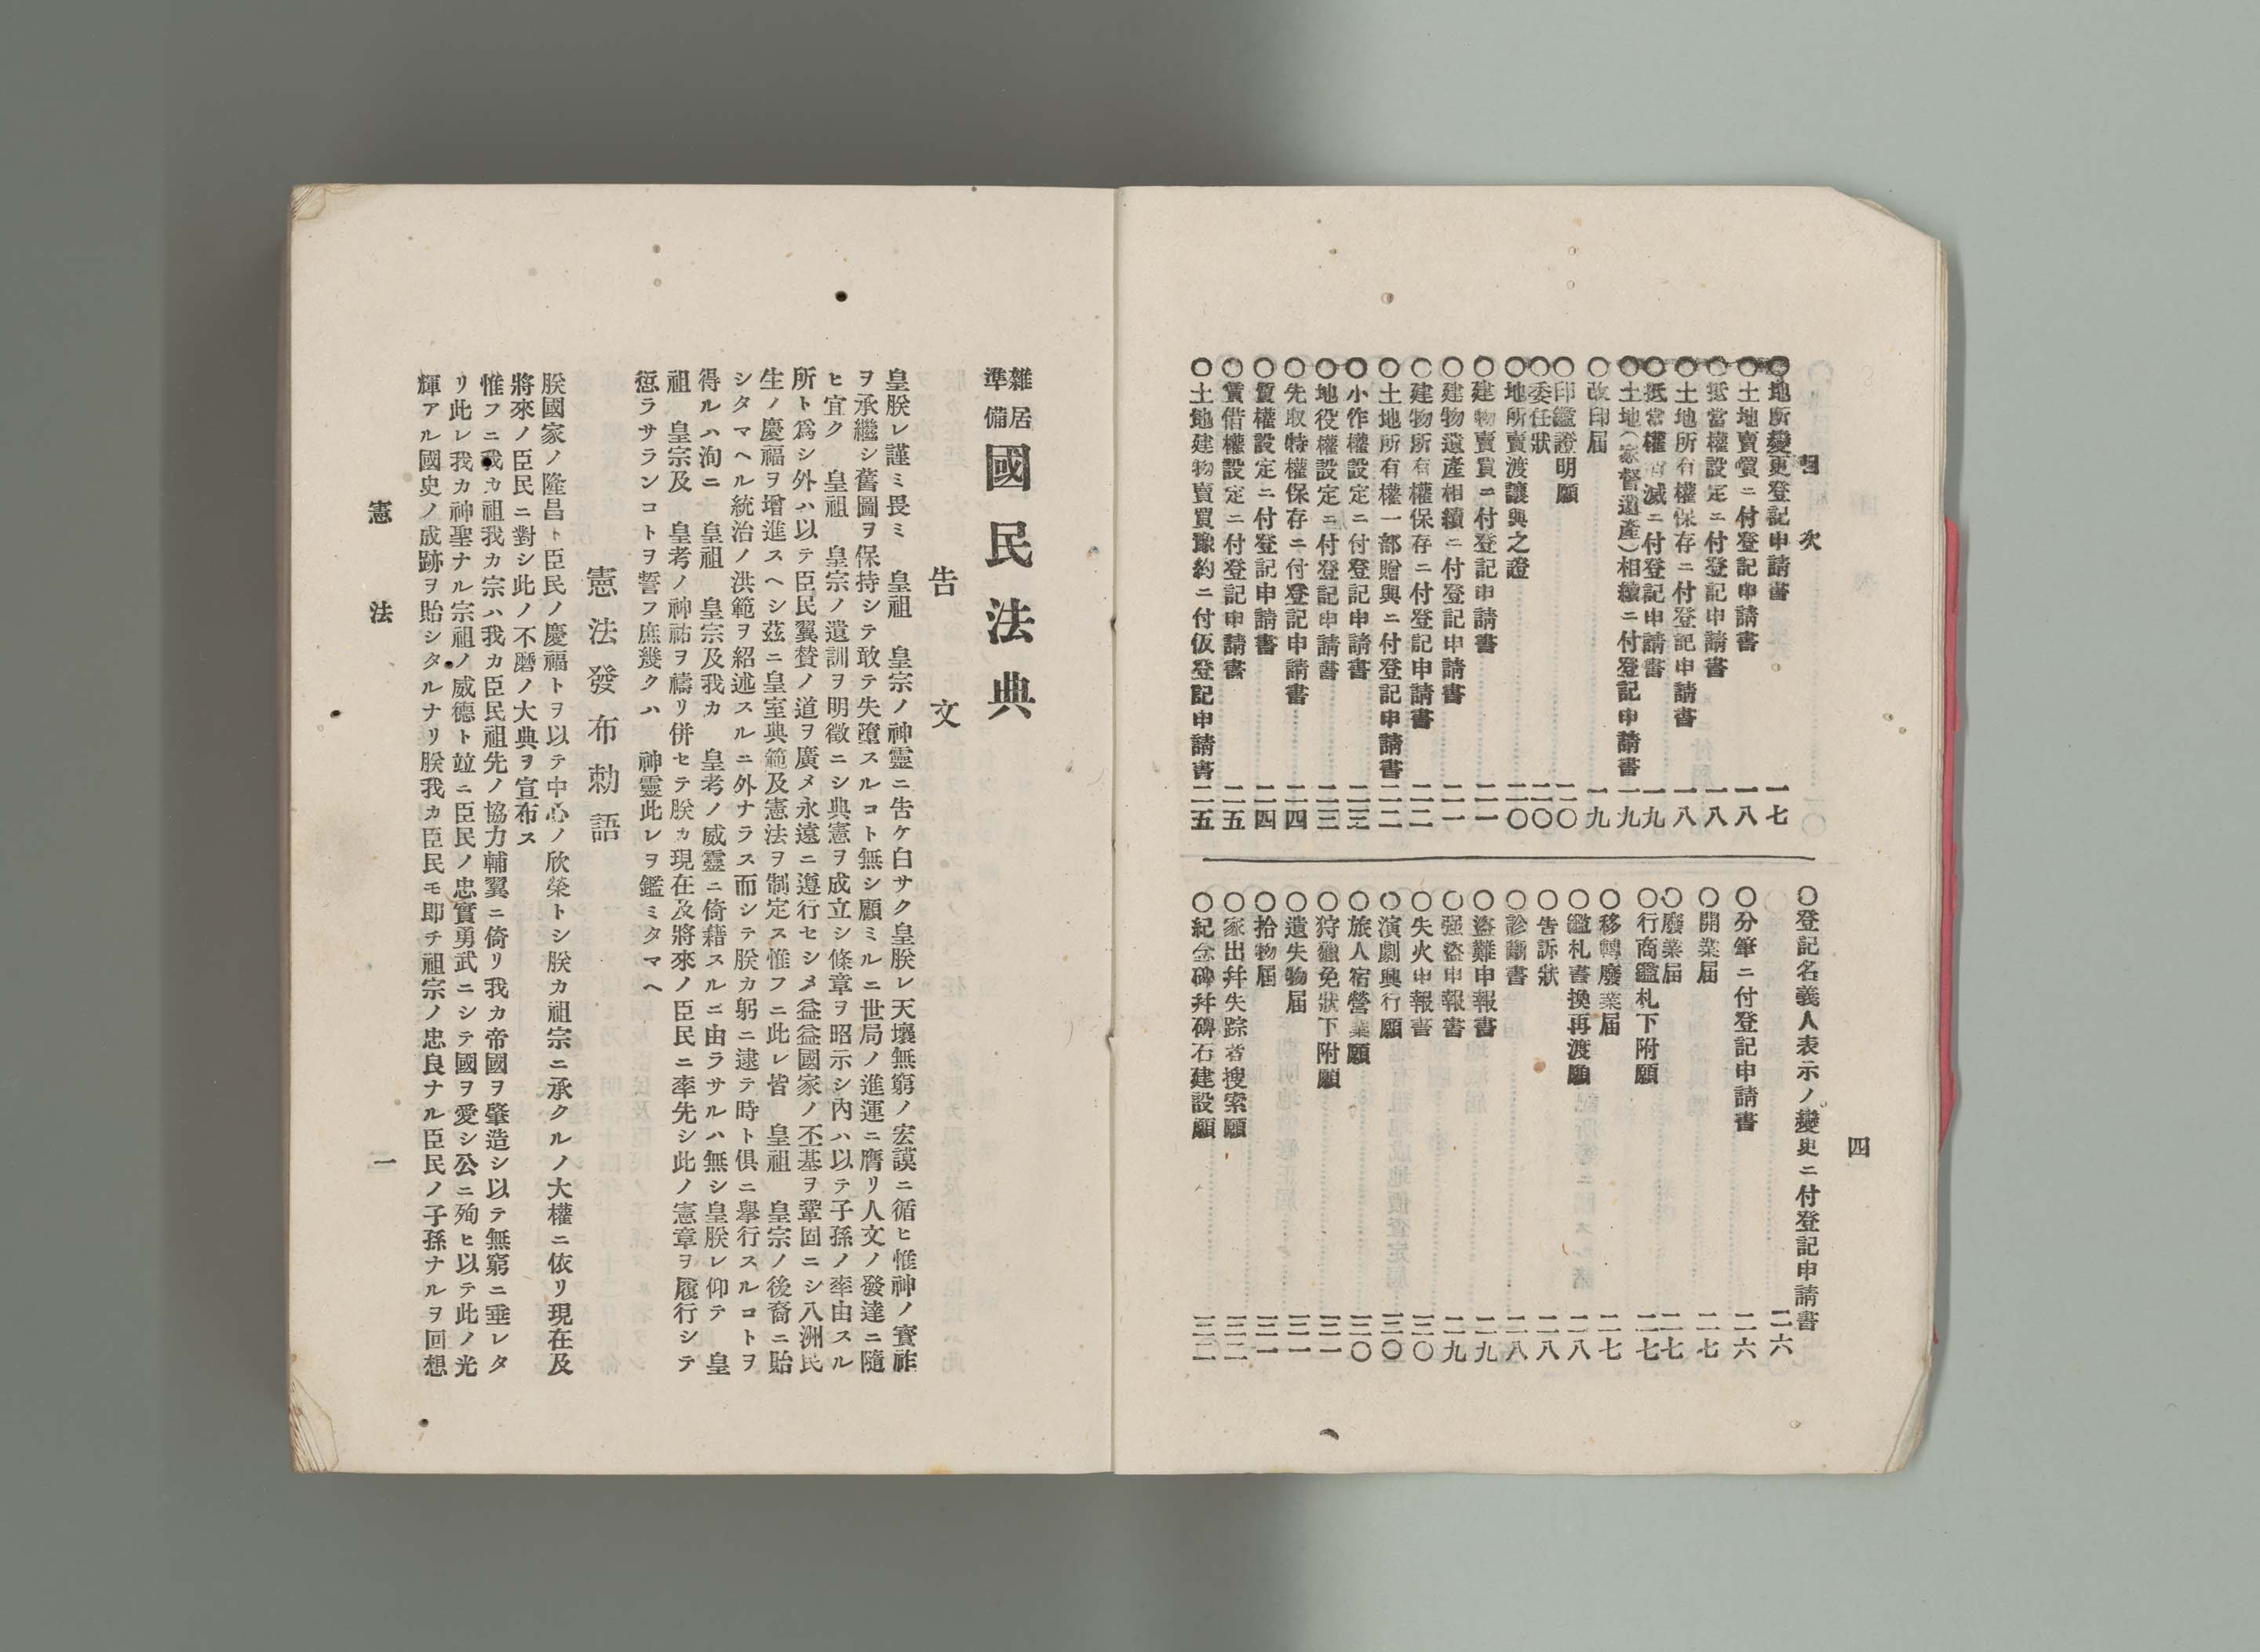 目次
四
〇地所變更登記申請書 一七
〇土地賣買ニ付登記申請書 一八
〇抵當權設定ニ付登記申請書 一八
〇土地所有權保存ニ付登記申請書 一八
〇抵當權消滅ニ付登記申請書 一九
〇土地(家督遺產)相續ニ付登記申請書 一九
〇改印届 一九
〇印鑑證明願 二〇
〇委任狀 二〇
〇地所賣渡讓與之證 二〇
〇建物賣買ニ付登記申請書 二一
〇建物遺產相續ニ付登記申請書 二一
〇建物所有權保存ニ付登記申請書 二二
〇土地所有權一部贈與ニ付登記申請書 二二
〇小作權設定ニ付登記申請書 二三
〇地役權設定ニ付登記申請書 二三
〇先取特權保存ニ付登記申請書 二四
〇質權設定ニ付登記申請書 二四
〇賃借權設定ニ付登記申請書 二五
〇土地建物賣買豫約ニ付仮登記申請書 二五
〇登記名義人表示ノ變更ニ付登記申請書 二六
〇分筆ニ付登記申請書 二六
〇開業届 二七
〇廢業届 二七
〇行商鑑札下附願 二七
〇移轉廢業届 二七
〇鑑札書換再渡願 二八
〇告訴狀 二八
〇診斷書 二八
〇盜難申報書 二九
〇强盜申報書 二九
〇失火申報書 三〇
〇演劇興行願 三〇
〇旅人宿營業願 三〇
〇狩獵免狀下附願 三一
〇遺失物届 三一
〇拾物届 三一
〇家出幷失踪者搜索願 三二
〇紀念碑幷碑石建設願 三二
雜居準備國民法典
告文
皇朕レ謹ミ畏ミ 皇祖 皇宗ノ神靈ニ告ケ白サク皇朕レ天壤無窮ノ宏謨ニ循ヒ惟神ノ寶祚
ヲ承繼シ舊圖ヲ保持シテ敢テ失墮スルコト無シ顧ミルニ世局ノ進運ニ膺リ人文ノ發達ニ隨
ヒ宜ク 皇祖 皇宗ノ遺訓ヲ明徵ニシ典憲ヲ成立シ條章ヲ昭示シ內ハ以テ子孫ノ率由スル
所ト爲シ外ハ以テ臣民翼贊ノ道ヲ廣メ永遠ニ遵行セシメ益益國家ノ丕基ヲ鞏固ニシ八洲民
生ノ慶福ヲ增進スヘシ茲ニ皇室典範及憲法ヲ制定ス惟フニ此レ皆 皇祖 皇宗ノ後裔ニ貽
シタマヘル統治ノ洪範ヲ紹述スルニ外ナラス而シテ朕カ躬ニ逮テ時ト俱ニ擧行スルコトヲ
得ルハ洵ニ 皇祖 皇宗及我カ 皇考ノ威靈ニ倚藉スルニ由ラサルハ無シ皇朕レ仰テ 皇
祖 皇宗及 皇考ノ神祐ヲ禱リ併セテ朕カ現在及將來ノ臣民ニ率先シ此ノ憲章ヲ履行シテ
愆ラサランコトヲ誓フ庶幾クハ 神靈此レヲ鑑ミタマヘ
憲法發布勅語
朕國家ノ隆昌ト臣民ノ慶福トヲ以テ中心ノ欣榮トシ朕カ祖宗ニ承クルノ大權ニ依リ現在及
將來ノ臣民ニ對シ此ノ不磨ノ大典ヲ宣布ス
惟フニ我カ祖我カ宗ハ我カ臣民祖先ノ協力輔翼ニ倚リ我カ帝國ヲ肇造シ以テ無窮ニ垂レタ
リ此レ我カ神聖ナル宗祖ノ威德ト竝ニ臣民ノ忠實勇武ニシテ國ヲ愛シ公ニ殉ヒ以テ此ノ光
輝アル國史ノ成跡ヲ貽シタルナリ朕我カ臣民モ卽チ祖宗ノ忠良ナル臣民ノ子孫ナルヲ回想
憲法
一